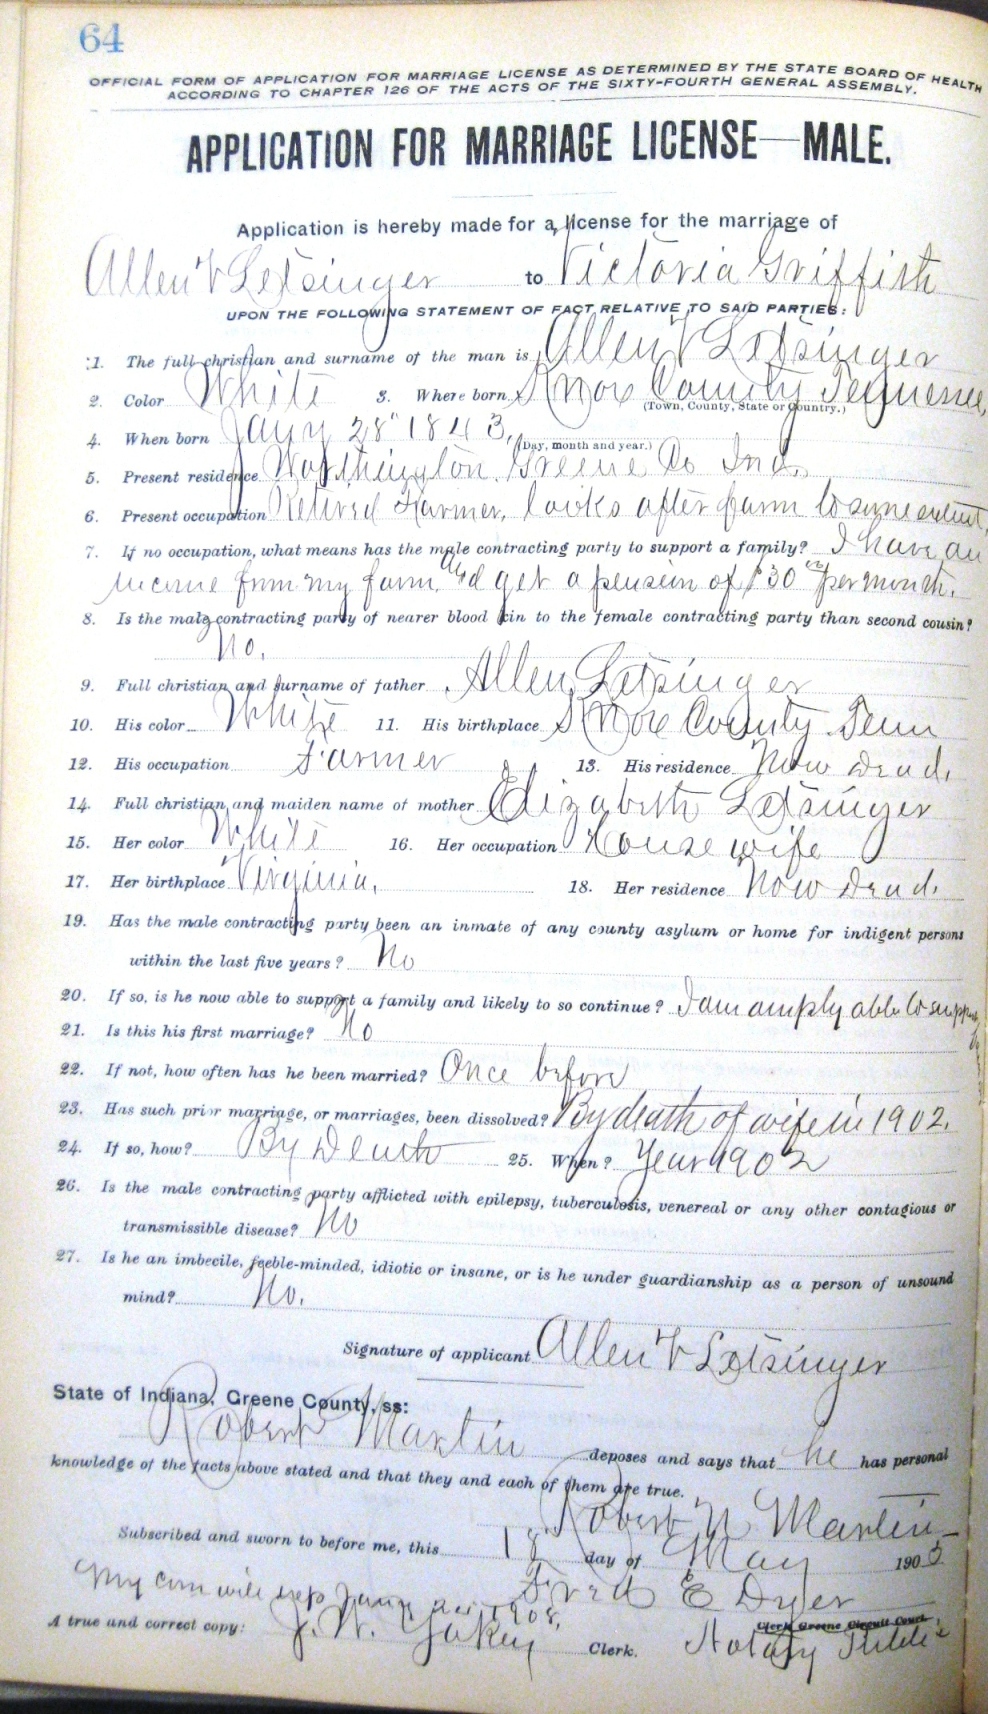 64
OFFICIAL FORM OF APPLICATION FOR MARRIAGE LICENSE AS DETERMINED BY THE STATE BOARD OF HEALTH
ACCORDING TO CHAPTER 126 OF THE ACTS OF THE SIXTY-FOURTH GENERAL ASSEMBLY.
APPLICATION FOR MARRIAGE LICENSE—MALE.
Application is hereby made for a license for the marriage of
Allen V Letsinger to Victoria Griffith
UPON THE FOLLOWING STATEMENT OF FACT RELATIVE TO SAID PARTIES:
1. The full christian and surname of the man is Allen V Letsinger
2. Color White 3. Where born Knox County Tennessee,
(Town, County, State or Country.)
4. When born Jany 28" 1843,
(Day, month and year.)
5. Present residence Worthington Greene Co Ind.
6. Present occupation Retired Farmer, looks after farm to some extent,
7. If no occupation, what means has the male contracting party to support a family? I have an
income from my farm and get a pension of $30 00 per month.
8. Is the male contracting party of nearer blood kin to the female contracting party than second cousin?
No.
9. Full christian and surname of father Allen Letsinger
10. His color White 11. His birthplace Knox County Tenn
12. His occupation Farmer 13. His residence Now Dead.
14. Full christian and maiden name of mother Elizabeth Letsinger
15. Her color White 16. Her occupation House wife
17. Her birthplace Virginia. 18. Her residence Now Dead.
19. Has the male contracting party been an inmate of any county asylum or home for indigent persons
within the last five years? No
20. If so, is he now able to support a family and likely to so continue? I am amply able to support
21. Is this his first marriage? No
22. If not, how often has he been married? Once before
23. Has such prior marriage, or marriages, been dissolved? By death of wife in 1902.
24. If so, how? By Death 25. When? Year 1902
26. Is the male contracting party afflicted with epilepsy, tuberculosis, venereal or any other contagious or
transmissible disease? No
27. Is he an imbecile, feeble-minded, idiotic or insane, or is he under guardianship as a person of unsound
mind? No.
Signature of applicant Allen V Letsinger
State of Indiana, Greene County, ss:
Robert Martin deposes and says that he has personal
knowledge of the facts above stated and that they and each of them are true.
Robert N Martin
Subscribed and sworn to before me, this 18 day of May 190
My com will exp Jany 1908, Fred E Dyer
Clerk Greene Circuit Court
A true and correct copy: J. W. Yakey Clerk. Notary Public